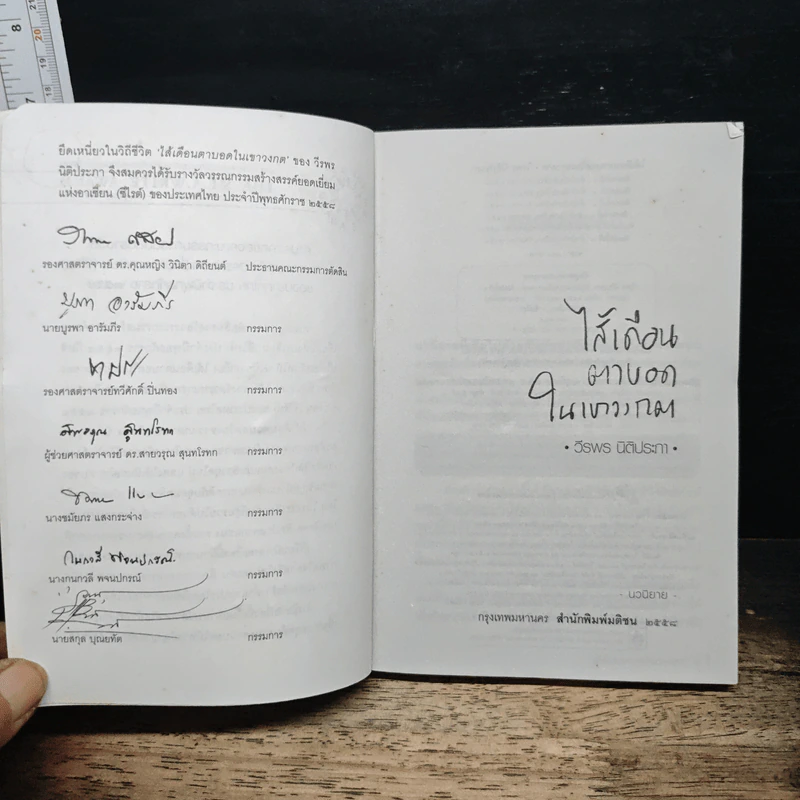 8
20
19
18
7
ยึดเหนี่ยวในวิถีชีวิต 'ไส้เดือนตาบอดในเขาวงกต' ของ วีรพร
นิติประภา จึงสมควรได้รับรางวัลวรรณกรรมสร้างสรรค์ยอดเยี่ยม
แห่งอาเซียน (ซีไรต์) ของประเทศไทย ประจำปีพุทธศักราช ๒๕๕๘
รองศาสตราจารย์ ดร.คุณหญิง วินิตา ดิถียนต์ ประธานคณะกรรมการตัดสิน
บูรพา อารัมภีร
นายบูรพา อารัมภีร กรรมการ
รองศาสตราจารย์ทวีศักดิ์ ปิ่นทอง กรรมการ
สายวรุณ สุนทโรทก
ผู้ช่วยศาสตราจารย์ ดร.สายวรุณ สุนทโรทก กรรมการ
นางชมัยภร แสงกระจ่าง กรรมการ
กนกวลี พจนปกรณ์
นางกนกวลี พจนปกรณ์ กรรมการ
นายสกุล บุณยทัต กรรมการ
ไส้เดือน
ตาบอด
ในเขาวงกต
• วีรพร นิติประภา •
- นวนิยาย -
กรุงเทพมหานคร สำนักพิมพ์มติชน ๒๕๕๘